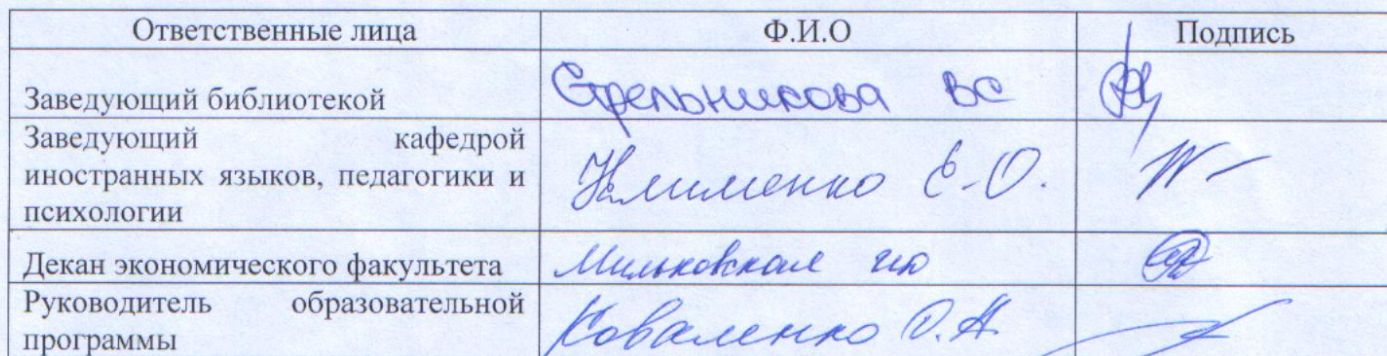 Ответственные лица Ф.И.О Подпись
Заведующий библиотекой Стрельникова ВС
Заведующий кафедрой
иностранных языков, педагогики и Клименко Е.О.
психологии
Декан экономического факультета Мильковская
Руководитель образовательной Коваленко О.А.
программы